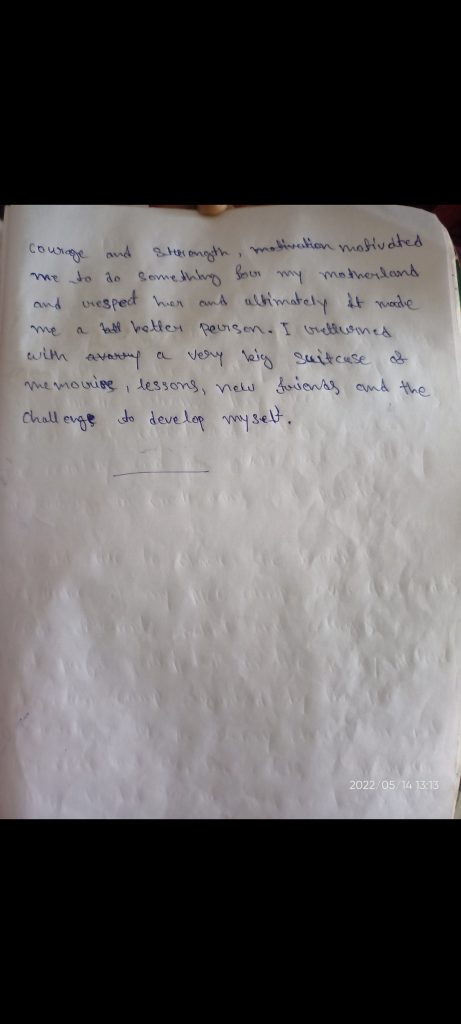 courage and strength, motivation motivated
me to do something for my motherland
and respect her and ultimately it made
me a better person. I returned
with a very big suitcase of
memories, lessons, new friends and the
challenge to develop myself.
2022/05/14 13:13